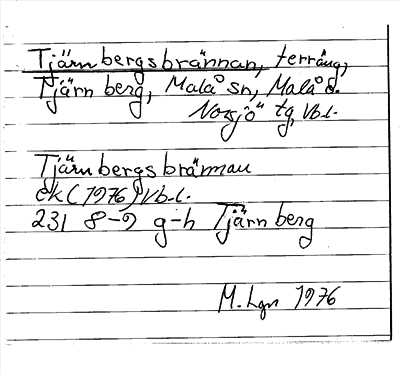 Tjärnbergsbrännan, terräng,
Tjärnberg, Malå sn, Malå d.
Norsjö tg, Vb.l.
Tjärnbergsbrännan
ek (1976) Vb.l.
231 8-9 g-h Tjärnberg
M. Lgn 1976